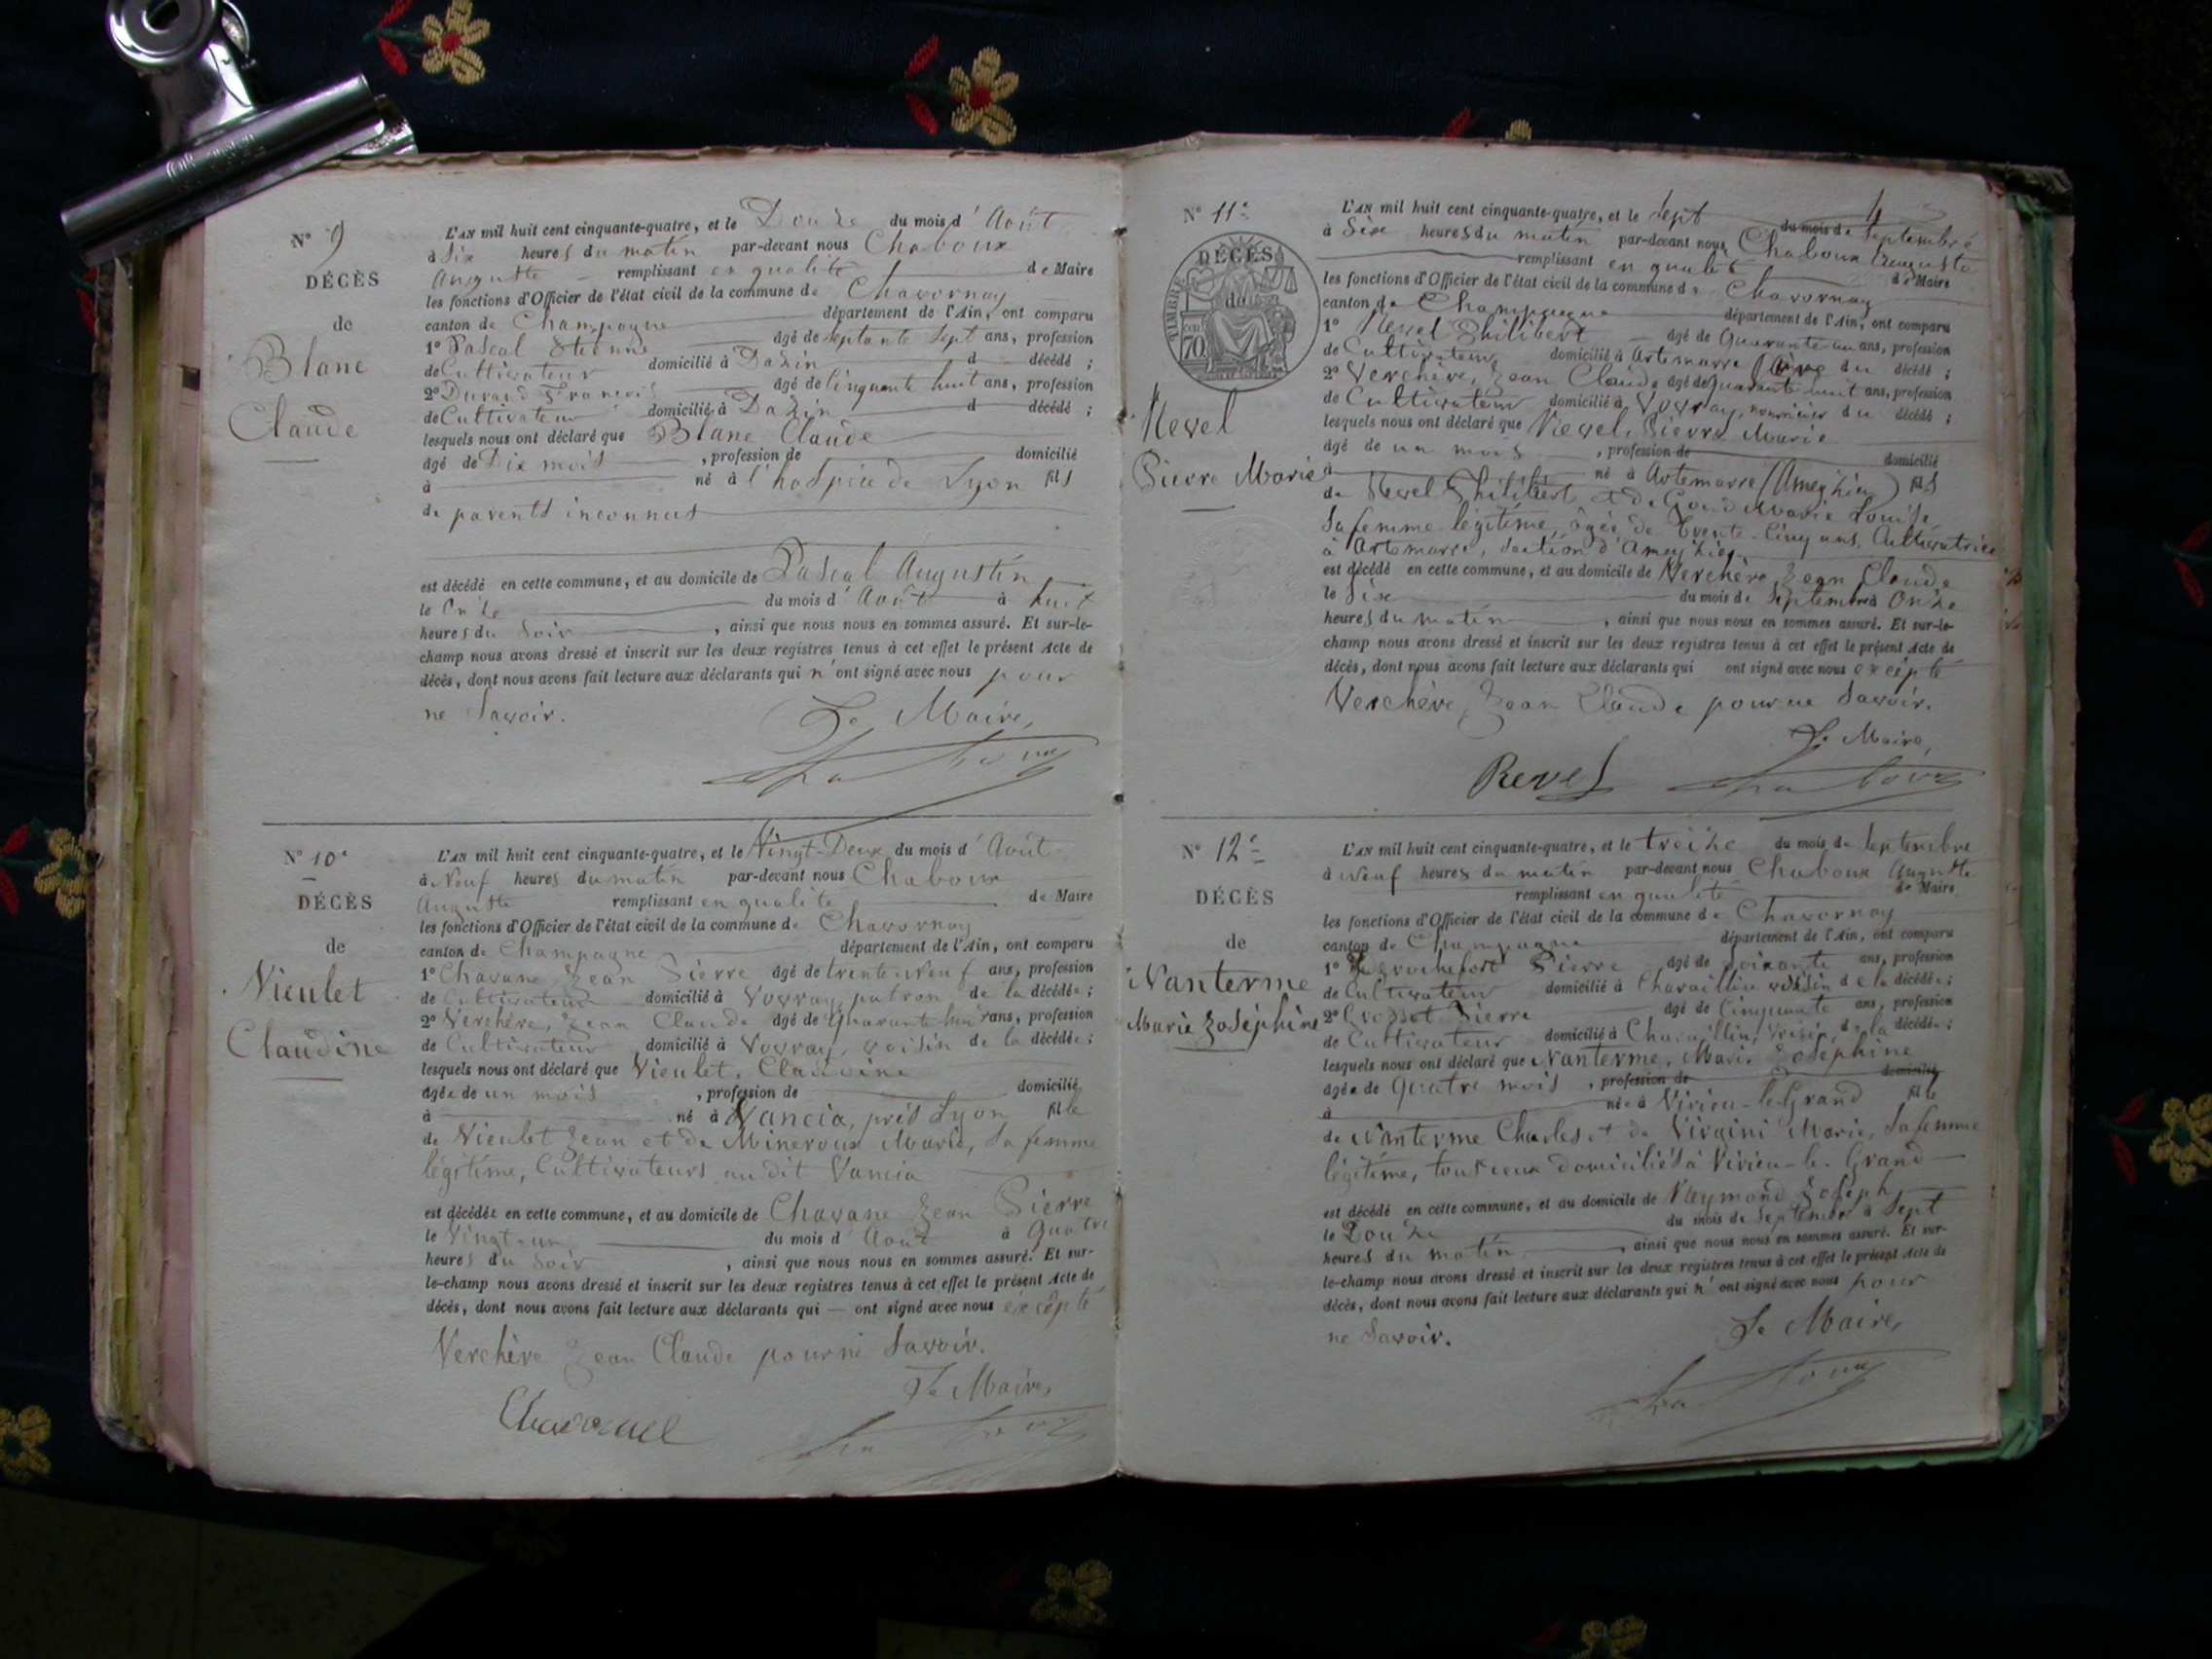 N° 9
DÉCÈS
de
Blanc
Claude
L'AN mil huit cent cinquante-quatre, et le Douze du mois d'Août
à Six heures du matin par-devant nous Chaboux
Auguste remplissant en qualité de Maire
les fonctions d'Officier de l'état civil de la commune de Chavornay
canton de Champagne département de l'Ain, ont comparu
1° Pascal Etienne âgé de septante sept ans, profession
de Cultivateur domicilié à Dazin d décédé ;
2° Durand François âgé de Cinquante huit ans, profession
de Cultivateur domicilié à Dazin d décédé ;
lesquels nous ont déclaré que Blanc Claude
âgé de Dix mois , profession de domicilié
à né à l'hospice de Lyon fils
de parents inconnus
est décédé en cette commune, et au domicile de Pascal Augustin
le Onze du mois d'Août à huit
heures du Soir , ainsi que nous nous en sommes assuré. Et sur-le-
champ nous avons dressé et inscrit sur les deux registres tenus à cet effet le présent Acte de
décès, dont nous avons fait lecture aux déclarants qui n'ont signé avec nous pour
ne Savoir.
Le Maire,
Chaboux
N° 10e
DÉCÈS
de
Vieulet
Claudine
L'AN mil huit cent cinquante-quatre, et le Vingt-Deux du mois d'Août
à Neuf heures du matin par-devant nous Chaboux
Auguste remplissant en qualité de Maire
les fonctions d'Officier de l'état civil de la commune de Chavornay
canton de Champagne département de l'Ain, ont comparu
1° Chavane Jean Pierre âgé de trente Neuf ans, profession
de Cultivateur domicilié à Vovray, patron de la décédée ;
2° Verchère, Jean Claude âgé de Quarante huit ans, profession
de Cultivateur domicilié à Vovray, voisin de la décédée ;
lesquels nous ont déclaré que Vieulet, Claudine
âgée de un mois , profession de domicilié
à né à Vancia, près Lyon fille
de Vieulet Jean et de Mineroux Marie, Sa femme
légitime, Cultivateurs au dit Vancia
est décédée en cette commune, et au domicile de Chavane Jean Pierre
le Vingt-un du mois d'Août à Quatre
heures du Soir , ainsi que nous nous en sommes assuré. Et sur-
le-champ nous avons dressé et inscrit sur les deux registres tenus à cet effet le présent Acte de
décès, dont nous avons fait lecture aux déclarants qui — ont signé avec nous excepté
Verchère Jean Claude pour ne Savoir.
Le Maire,
Chaboux
4
N° 11e
DÉCÈS
TIMBRE
70
Revel
Pierre Marie
L'AN mil huit cent cinquante-quatre, et le Sept du mois de Septembre
à Six heures du matin par-devant nous Chaboux Auguste
remplissant en qualité de Maire
les fonctions d'Officier de l'état civil de la commune de Chavornay
canton de Champagne département de l'Ain, ont comparu
1° Revel Philibert âgé de Quarante-un ans, profession
de Cultivateur domicilié à Artemarre Père du décédé ;
2° Verchère, Jean Claude âgé de Quarante-huit ans, profession
de Cultivateur domicilié à Vovray, nourricier du décédé ;
lesquels nous ont déclaré que Revel, Pierre Marie
âgé de un mois , profession de domicilié
à né à Artemarre (Ameyzieu) fils
de Revel Philibert et de Marie Louise
Sa femme légitime, âgée de trente-cinq ans, Cultivatrice
à Artemarre, Section d'Ameyzieu
est décédé en cette commune, et au domicile de Verchère, Jean Claude
le Six du mois de Septembre à Onze
heures du matin , ainsi que nous nous en sommes assuré. Et sur-le-
champ nous avons dressé et inscrit sur les deux registres tenus à cet effet le présent Acte de
décès, dont nous avons fait lecture aux déclarants qui ont signé avec nous excepté
Verchère, Jean Claude pour ne Savoir.
Le Maire,
Revel Chaboux
N° 12e
DÉCÈS
de
Nanterme
Marie Joséphine
L'AN mil huit cent cinquante-quatre, et le treize du mois de Septembre
à Neuf heures du matin par-devant nous Chaboux Auguste
remplissant en qualité de Maire
les fonctions d'Officier de l'état civil de la commune de Chavornay
canton de Champagne département de l'Ain, ont comparu
1° Pierre âgé de Soixante ans, profession
de Cultivateur domicilié à Charaillin voisin de la décédée ;
2° Pierre âgé de Cinquante ans, profession
de Cultivateur domicilié à Charaillin, Voisin de la décédée ;
lesquels nous ont déclaré que Nanterme, Marie Joséphine
âgée de Quatre mois , profession de domicilié
à née à Virieu-le-Grand fille
de Nanterme Charles et de Virgini Marie, Sa femme
légitime, tous deux domiciliés à Virieu-le-Grand
est décédé en cette commune, et au domicile de Reymond Joseph
le Douze du mois de Septembre à Sept
heures du matin , ainsi que nous nous en sommes assuré. Et sur-
le-champ nous avons dressé et inscrit sur les deux registres tenus à cet effet le présent Acte de
décès, dont nous avons fait lecture aux déclarants qui n'ont signé avec nous pour
ne Savoir.
Le Maire,
Chaboux